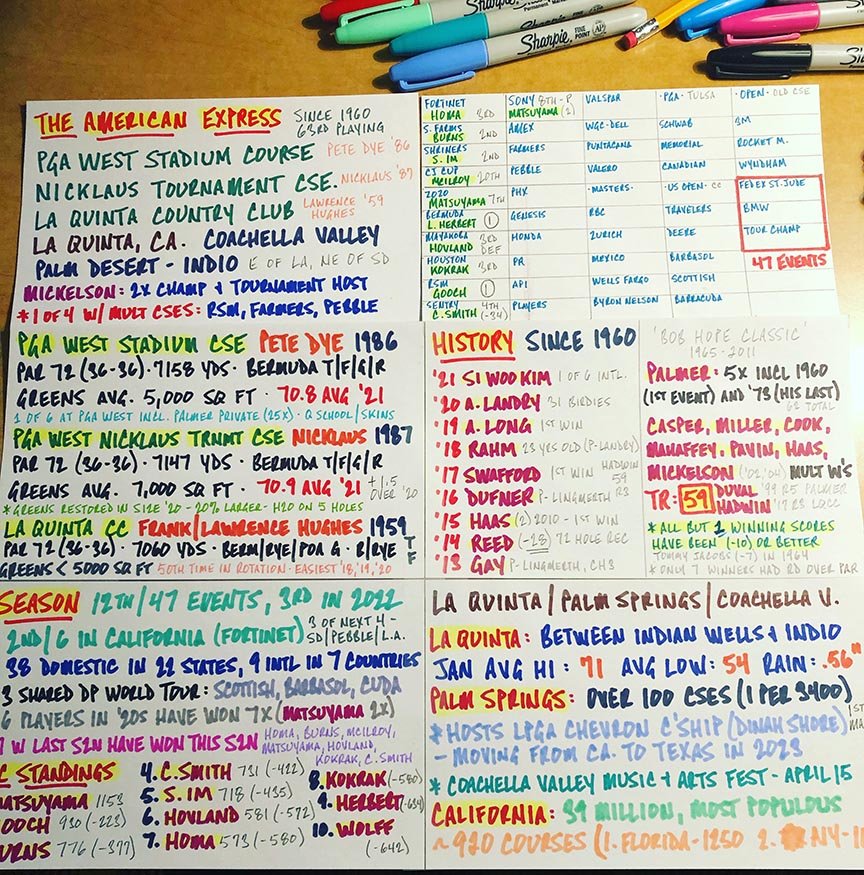 Sharpie FINE POINT
Sharpie
THE AMERICAN EXPRESS SINCE 1960
63RD PLAYING
PGA WEST STADIUM COURSE PETE DYE '86
NICKLAUS TOURNAMENT CSE. NICKLAUS '87
LA QUINTA COUNTRY CLUB LAWRENCE '59
HUGHES
LA QUINTA, CA. COACHELLA VALLEY
PALM DESERT - INDIO E OF LA, NE OF SD
MICKELSON: 2X CHAMP + TOURNAMENT HOST
* 1 OF 4 W/ MULT CSES: RSM, FARMERS, PEBBLE
FORTINET HOMA 3RD
S. FARMS BURNS 2ND
SHRINERS S. IM 2ND
CJ CUP MCILROY 20TH
2020 MATSUYAMA 7TH
BERMUDA L. HERBERT 1
MAYAKOBA HOVLAND 3RD DEF
HOUSTON KOKRAK 3RD
RSM GOOCH 1
SENTRY C. SMITH 4TH (-34)
SONY 8TH-P MATSUYAMA (2)
AMEX
FARMERS
PEBBLE
PHX
GENESIS
HONDA
PR
API
PLAYERS
VALSPAR
WGC-DELL
PUNTACANA
VALERO
·MASTERS·
RBC
ZURICH
MEXICO
WELLS FARGO
BYRON NELSON
·PGA· TULSA
SCHWAB
MEMORIAL
CANADIAN
·US OPEN· CC
TRAVELERS
DEERE
BARBASOL
SCOTTISH
BARRACUDA
·OPEN· OLD CSE
3M
ROCKET M.
WYNDHAM
FEDEX ST. JUDE
BMW
TOUR CHAMP
47 EVENTS
PGA WEST STADIUM CSE PETE DYE 1986
PAR 72 (36-36) · 7158 YDS · BERMUDA T/F/G/R
GREENS AVG. 5,000 SQ FT · 70.8 AVG '21
1 OF 6 AT PGA WEST INCL. PALMER PRIVATE (25X) · Q SCHOOL/SKINS
PGA WEST NICKLAUS TRNMT CSE NICKLAUS 1987
PAR 72 (36-36) · 7147 YDS · BERMUDA T/F/G/R
GREENS AVG. 7,000 SQ FT · 70.9 AVG '21 +1.5
OVER '20
* GREENS RESTORED IN SIZE '20 - 20% LARGER - H2O ON 5 HOLES
LA QUINTA CC FRANK/LAWRENCE HUGHES 1959
PAR 72 (36-36) · 7060 YDS · BERM/RYE/POA G · B/RYE T
F
GREENS < 5000 SQ FT 50TH TIME IN ROTATION - EASIEST '18, '19, '20
HISTORY SINCE 1960
'21 SI WOO KIM 1 OF 6 INTL.
'20 A. LANDRY 31 BIRDIES
'19 A. LONG 1ST WIN
'18 RAHM 23 YRS OLD (P-LANDRY)
'17 SWAFFORD 1ST WIN HADWIN
59
'16 DUFNER P-LINGMERTH R3
'15 HAAS (2) 2010 - 1ST WIN
'14 REED (-28) 72 HOLE REC
'13 GAY P-LINGMERTH, CH3
'BOB HOPE CLASSIC'
1965-2011
PALMER: 5X INCL 1960
(1ST EVENT) AND '73 (HIS LAST)
62 TOTAL
CASPER, MILLER, COOK,
MAHAFFEY, PAVIN, HAAS,
MICKELSON ('02 '04) MULT W'S
TR: 59 DUVAL '99 R5 PALMER
HADWIN '17 R3 LQCC
* ALL BUT 1 WINNING SCORES
HAVE BEEN (-10) OR BETTER
TOMMY JACOBS (-7) IN 1964
* ONLY 7 WINNERS HAD RD OVER PAR
SEASON 12TH/47 EVENTS, 3RD IN 2022
2ND/6 IN CALIFORNIA (FORTINET) 3 OF NEXT 4 -
SD/PEBBLE/L.A.
38 DOMESTIC IN 22 STATES, 9 INTL IN 7 COUNTRIES
3 SHARED DP WORLD TOUR: SCOTTISH, BARBASOL, CUDA
6 PLAYERS IN '20S HAVE WON 7X (MATSUYAMA 2X)
7 W LAST SZN HAVE WON THIS SZN HOMA, BURNS, MCILROY,
MATSUYAMA, HOVLAND,
KOKRAK, C. SMITH
C STANDINGS
MATSUYAMA 1153
GOOCH 930 (-223)
BURNS 776 (-377)
4. C. SMITH 731 (-422)
5. S. IM 718 (-435)
6. HOVLAND 581 (-572)
7. HOMA 573 (-580)
8. KOKRAK (-580)
9. HERBERT (-634)
10. WOLFF
(-642)
LA QUINTA/PALM SPRINGS/COACHELLA V.
LA QUINTA: BETWEEN INDIAN WELLS + INDIO
JAN AVG HI: 71 AVG LOW: 54 RAIN: .56"
PALM SPRINGS: OVER 100 CSES (1 PER 3400)
* HOSTS LPGA CHEVRON C'SHIP (DINAH SHORE) 1ST
- MOVING FROM CA. TO TEXAS IN 2023
* COACHELLA VALLEY MUSIC + ARTS FEST - APRIL 15
CALIFORNIA: 39 MILLION, MOST POPULOUS
~ 920 COURSES (1. FLORIDA-1250 2. NY-